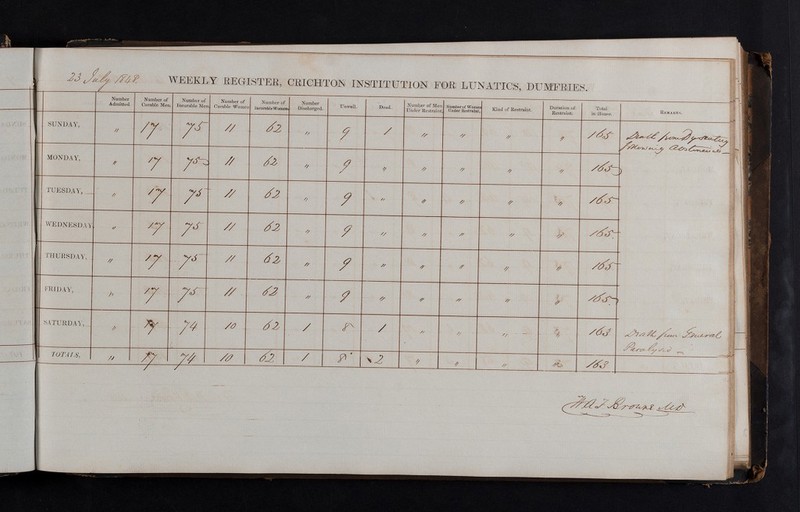 23 July 1848 WEEKLY REGISTER, CRICHTON INSTITUTION FOR LUNATICS, DUMFRIES.
Number Admitted. Number of Curable Men. Number of Incurable Men. Number of Curable Women. Number of Incurable Women. Number Discharged. Unwell. Dead. Number of Men Under Restraint. Number of Women Under Restraint. Kind of Restraint. Duration of Restraint. Total in House. REMARKS.
SUNDAY, " 17 75 11 62 " 9 1 " " " " 165 Death from Dysentery
following Abstinence
MONDAY, " 17 75 11 62 " 9 " " " " " 165
TUESDAY, " 17 75 11 62 " 9 " " " " " 165
WEDNESDAY, " 17 75 11 62 " 9 " " " " " 165
THURSDAY, " 17 75 11 62 " 9 " " " " " 165
FRIDAY, " 17 75 11 62 " 9 " " " " " 165
SATURDAY, " 17 74 10 62 1 8 1 " " " " 163 Death from General
Paralysis
TOTALS, " 17 74 10 62 1 8 2 " " " " 163
W A F Browne MD